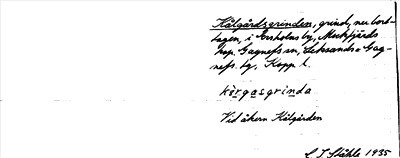 Kålgårdsgrinden, grind, nu bort-
tagen, i Ersholns by, Mockfjärds
kap. Gagnefs sn, Leksands o Gag-
nefs tg, Kopp. l.
kòrgasgrinda
Vid åkern Kålgården
C I Ståhle 1935